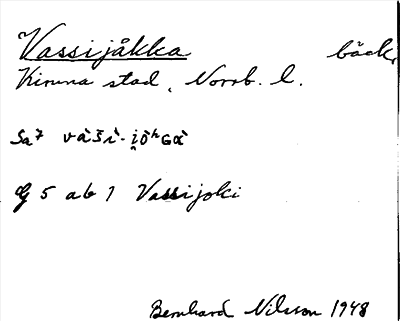 Vassijåkka bäck,
Kiruna stad, Norrb. l.
Sa7
G 5 ab 1 Vassijoki
Bernhard Nilsson 1948